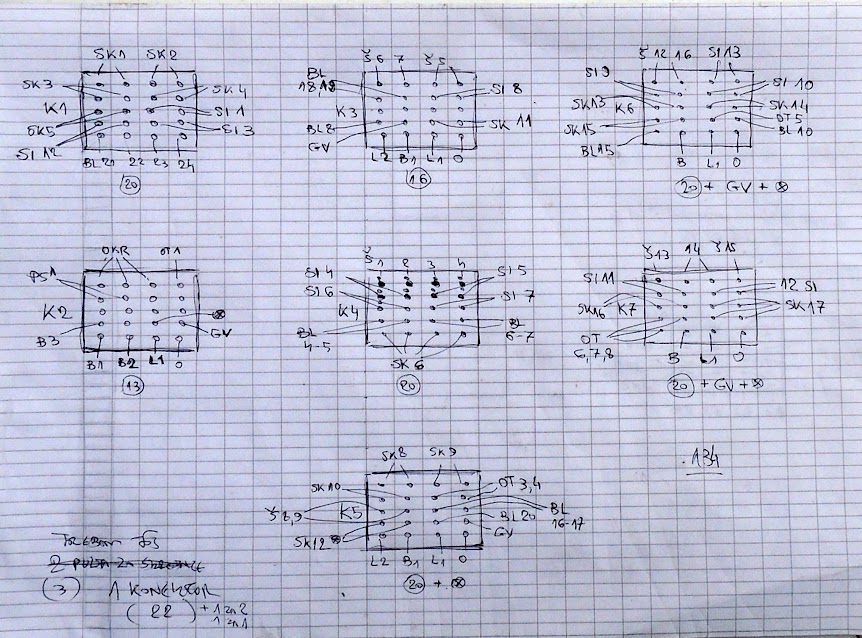 SK1 SK2
SK3 SK4
K1 SI1
SK5 SI3
SI12
BL21 22 23 24
20
Š6 7 Š5
BL
SI8
K3
BL2 SK11
GV
L2 B1 L1 0
16
Š12 16 SI13
SI9 SI10
SK13 K6 SK14
OT5
SK15 BL10
BL15
B L1 0
20 + GV + ⊗
OKR OT1
PS1
K2 ⊗
B3 GV
B1 B2 L1 0
13
Š1 2 3 4
SI4 SI5
SI6 SI7
K4
BL BL
4-5 6-7
SK6
20
Š13 14 Š15
SI11 12 SI
SK16 K7 SK17
OT
6,7,8
B L1 0
20 + GV + ⊗
134
SK8 SK9
SK10 OT3,4
Š8,9 K5 BL
BL20 16-17
SK12 GV
L2 B1 L1 0
20 + ⊗
3 1 KONEKTOR
(22) + 1 za 2
1 za 1